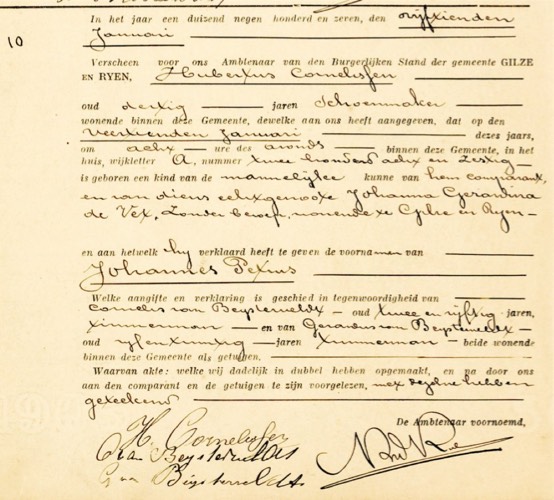 In het jaar een duizend negen honderd en zeven, den vijftienden
Januari
10
Verscheen voor ons Ambtenaar van den Burgerlijken Stand der gemeente GILZE
EN RYEN, Hubertus Cornelissen
oud dertig jaren Schoenmaker
wonende binnen deze Gemeente, dewelke aan ons heeft aangegeven, dat op den
veertienden Januari dezes jaars,
om acht ure des avonds binnen deze Gemeente, in het
huis, wijkletter A, nummer twee honderd acht en zestig
is geboren een kind van de mannelijke kunne van hem comparant,
en van diens echtgenoote Johanna Gerardina
de Vet, zonder beroep, wonende te Gilze en Ryen
en aan hetwelk hij verklaard heeft te geven de voornamen van
Johannes Petrus
Welke aangifte en verklaring is geschied in tegenwoordigheid van
Cornelis van Beijsterveldt oud twee en vijftig jaren,
timmerman en van Gerardus van Beijsterveldt
oud jaren timmerman beide wonende
binnen deze Gemeente als getuigen.
Waarvan akte: welke wij dadelijk in dubbel hebben opgemaakt, en na door ons
aan den comparant en de getuigen te zijn voorgelezen, met dezelve hebben
geteekend
De Ambtenaar voornoemd,
H. Cornelissen
van Beijsterveldt
G van Beijsterveldt